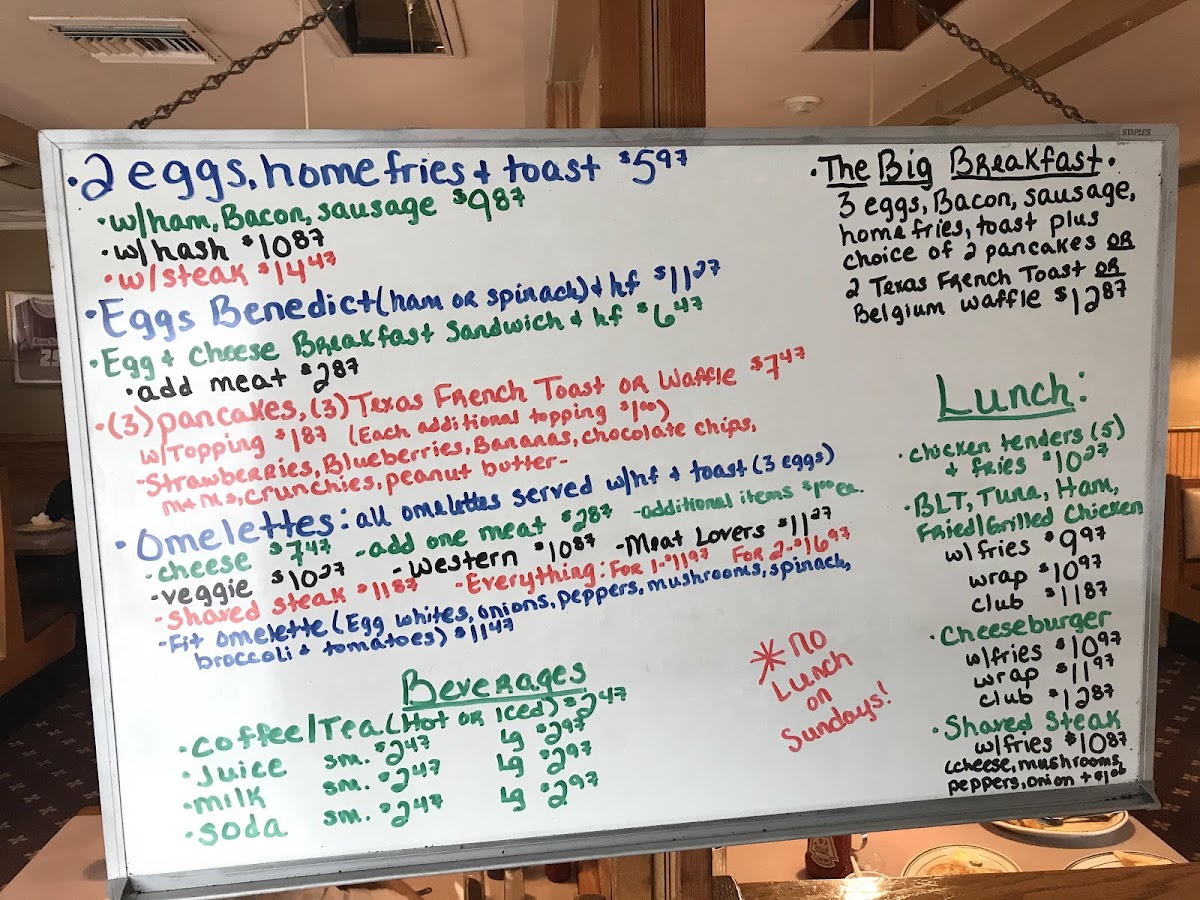 STAPLES
• 2 eggs, home fries + toast $5.97
• w/ham, Bacon, sausage $9.87
• w/hash $10.87
• w/steak $14.47
• Eggs Benedict (ham or spinach) + hf $11.27
• Egg + cheese Breakfast Sandwich + hf $6.47
• add meat $2.87
• (3) pancakes, (3) Texas French Toast or Waffle $7.47
w/Topping $1.87 (Each additional topping $1.00)
- Strawberries, Blueberries, Bananas, chocolate chips,
m+ms, crunchies, peanut butter -
• Omelettes: all omelettes served w/hf + toast (3 eggs)
- cheese $7.47 - add one meat $2.87 - additional items $1.00 ea.
- veggie $10.27 - western $10.87 - Meat Lovers $11.27
- shared steak $11.87 - Everything: For 1 - $11.97 For 2 - $16.97
- Fit omelette (Egg whites, onions, peppers, mushrooms, spinach,
broccoli + tomatoes) $11.47
Beverages
• coffee/Tea (Hot or Iced) $2.47
• Juice sm. $2.47 Lg $2.97
• milk sm. $2.47 Lg $2.97
• soda sm. $2.47 Lg $2.97
• The Big Breakfast •
3 eggs, Bacon, sausage,
home fries, toast plus
choice of 2 pancakes OR
2 Texas French Toast OR
Belgium Waffle $12.87
Lunch:
• chicken tenders (5)
+ fries $10.27
• BLT, Tuna, Ham,
Fried/Grilled Chicken
w/fries $9.97
wrap $10.97
club $11.87
• Cheeseburger
w/fries $10.97
wrap $11.97
club $12.87
• Shaved Steak
w/fries $10.87
(cheese, mushrooms,
peppers, onion + $1.00
* no
Lunch
on
Sundays!